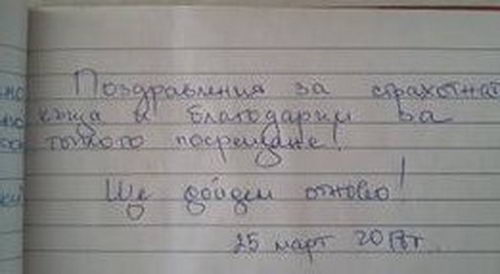 Поздравления за страхотната
къща и благодарим за
топлото посрещане!
Ще дойдем отново!
25 март